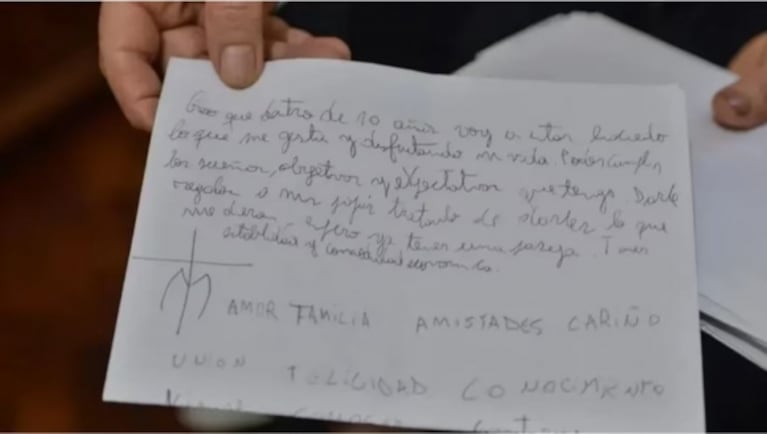 Creo que dentro de 10 años voy a estar haciendo
lo que me gusta y disfrutando mi vida. Poder cumplir
los sueños, objetivos y expectativas que tengo. Darle
regalos a mis papis tratando de darles lo que
me dieron, espero ya tener una pareja. Tener
estabilidad y comodidad economica.
AMOR FAMILIA AMISTADES CARIÑO
UNION FELICIDAD CONOCIMIENTO